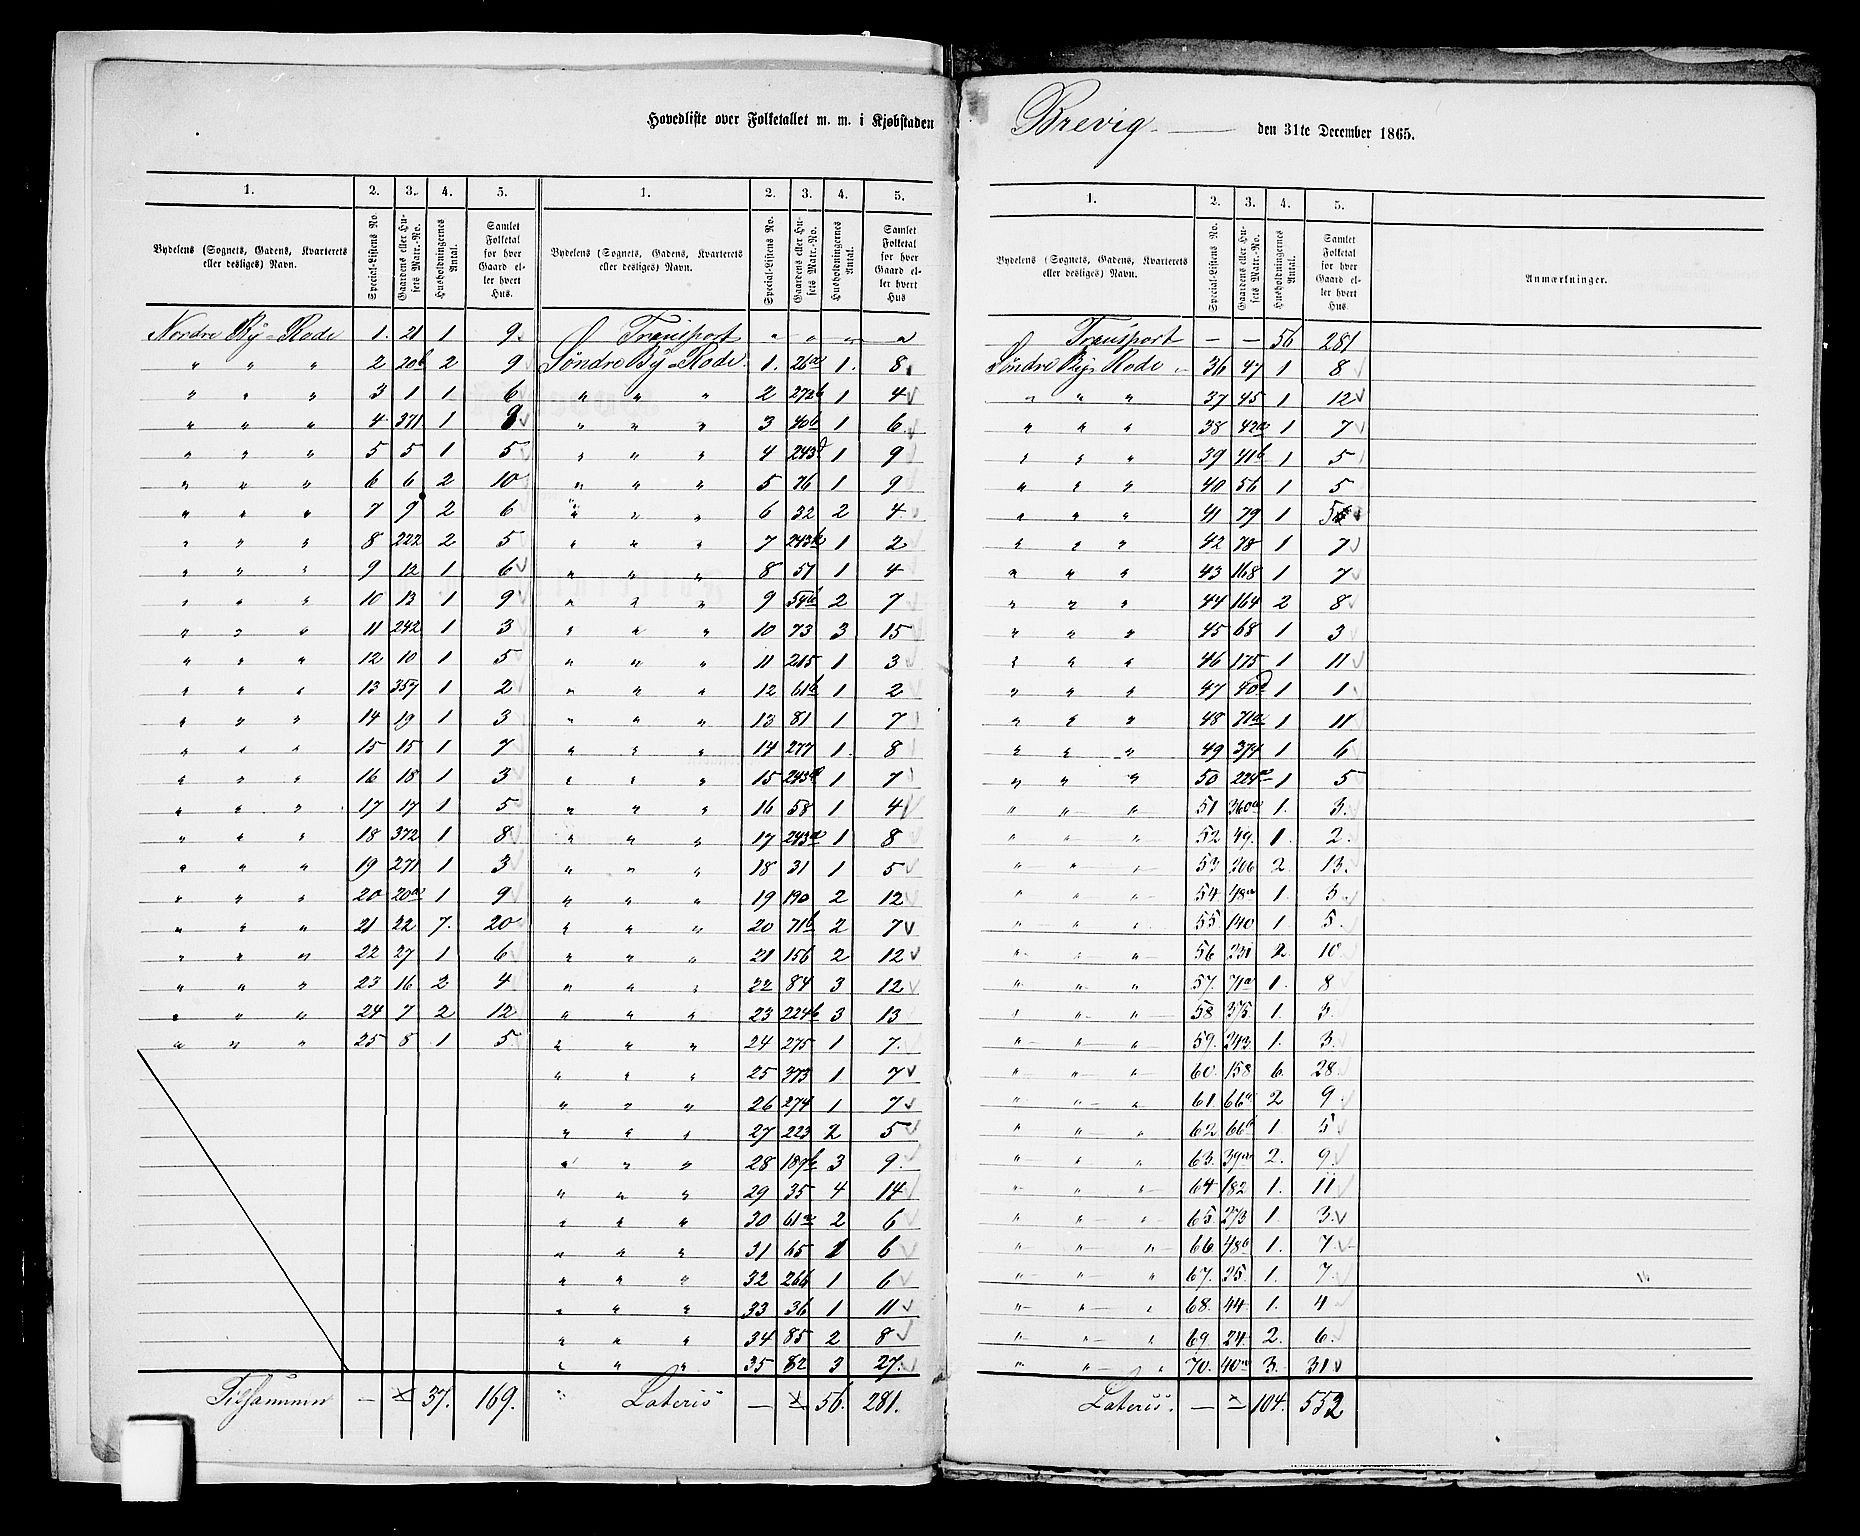 Hovedliste over Folketallet m. m. i Kjøbstaden Brevig den 31te December 1865.
1. 2. 3. 4. 5.
Bydelens (Sognets, Gadens, Kvarterets eller desliges) Navn. Special-Listens No. Gaardens eller Husets Matr.-No. Husholdningernes Antal. Samlet Folketal for hver Gaard eller hvert Hus.
Nordre By-Rode 1. 21 1 9.
" " " 2 20b 2 9
" " " 3 1 1 6
" " " 4 371 1
" " " 5 5 1 5
" " " 6 6 2 10
" " " 7 9 2 6
" " " 8 222 2 5
" " " 9 12 1 6
" " " 10 13 1 9
" " " 11 242 1 3
" " " 12 10 1 5
" " " 13 357 1 2
" " " 14 19 1 3
" " " 15 15 1 7
" " " 16 18 1 3
" " " 17 17 1 5
" " " 18 372 1 8
" " " 19 271 1 3
" " " 20 20a 1 9
" " " 21 22 7. 20
" " " 22 27 1 6
" " " 23 16 2 4
" " " 24 7 2 12
" " " 25 8 1 5
Tilsammen — 37. 169.
1. 2. 3. 4. 5.
Bydelens (Sognets, Gadens, Kvarterets eller desliges) Navn. Special-Listens No. Gaardens eller Husets Matr.-No. Husholdningernes Antal. Samlet Folketal for hver Gaard eller hvert Hus
Transport " " " "
Søndre By-Rode. 1. 26a 1. 8
" " " 2 272b 1 4
" " " 3 40b 1 6
" " " 4 243d 1 9
" " " 5 76 1 9
" " " 6 32 2 4
" " " 7 243b 1 2
" " " 8 51 1 4
" " " 9 54b 2 7
" " " 10 73 3 15
" " " 11 215 1 3
" " " 12 61b 1 2
" " " 13 81 1 7
" " " 14 277 1. 8
" " " 15 243 1 7
" " " 16 58 1 4
" " " 17 243a 1 8
" " " 18 31 1 5
" " " 19 190 2 12
" " " 20 71b 2 7
" " " 21 156 2 12
" " " 22 84 3 12
" " " 23 224b 3 13
" " " 24 275 1 7.
" " " 25 373 1 7
" " " 26 274 1 7
" " " 27 223 2 5
" " " 28 189b 3 9.
" " " 29 35 4 14
" " " 30 61a 2 6
" " " 31 65 1 6
" " " 32 266 1 6
" " " 33 36 1 11
" " " 34 85 2 8
" " " 35 82 3 27.
" Lateris — 56. 281.
1. 2. 3. 4. 5.
Bydelens (Sognets, Gadens, Kvarterets eller desliges) Navn. Special-Listens No. Gaardens eller Husets Matr.-No. Husholdningernes Antal. Samlet Folketal for hver Gaard eller hvert Hus. Anmærkninger.
Transport — — 56 281
Søndre By-Rode 36 47 1 8
" " " 37 45 1 12
" " " 38 42a 1 7
" " " 39 41b 1 5
" " " 40 56 1 5
" " " 41 79 1 5
" " " 42 78 1 7
" " " 43 168 1 7
" " " 44 164 2 8
" " " 45 68 1 3
" " " 46 175 1 11
" " " 47 40d 1 1
" " " 48 71a 1 11
" " " 49 374 1 6
" " " 50 224a 1 5
" " " 51 360a 1. 3.
" " " 52 49. 1. 2.
" " " 53 206 2. 13.
" " " 54 48a 1. 3.
" " " 55. 140 1. 5.
" " " 56 231 2. 10
" " " 57. 71a 1. 8
" " " 58 375. 1. 3.
" " " 59. 243. 1. 3.
" " " 60. 158 6. 28
" " " 61. 66a 2 9
" " " 62 66b 1. 5
" " " 63. 39a 2. 9.
" " " 64 182 1. 11
" " " 65. 273 1. 3.
" " " 66. 48b 1. 7.
" " " 67. 25. 1. 7.
" " " 68. 44 1. 4
" " " 69. 24 2. 6.
" " " 70. 40a 3. 31
Lateris. — 104. 552